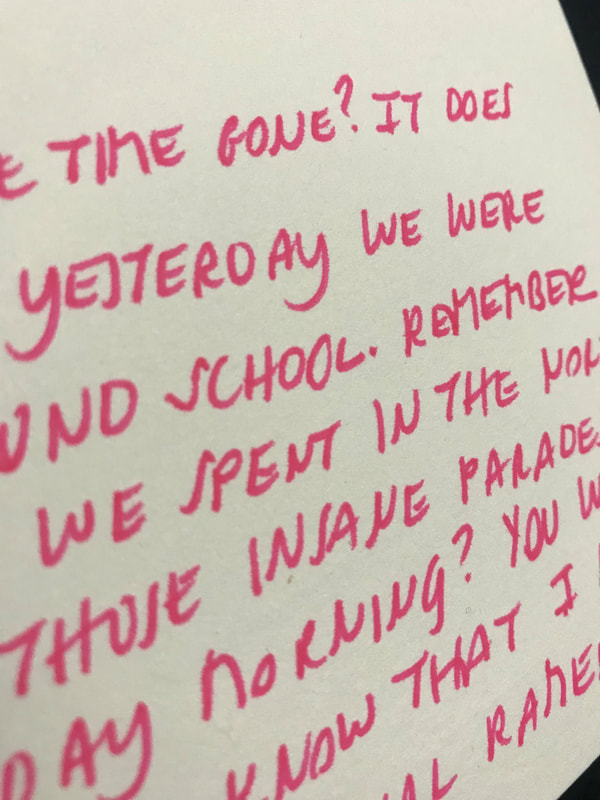 E TIME GONE? IT DOES
YESTERDAY WE WERE
UND SCHOOL. REMEMBER
WE SPENT IN THE
THOSE INSANE PARADES
DAY MORNING? YOU W
KNOW THAT I
AL RAME